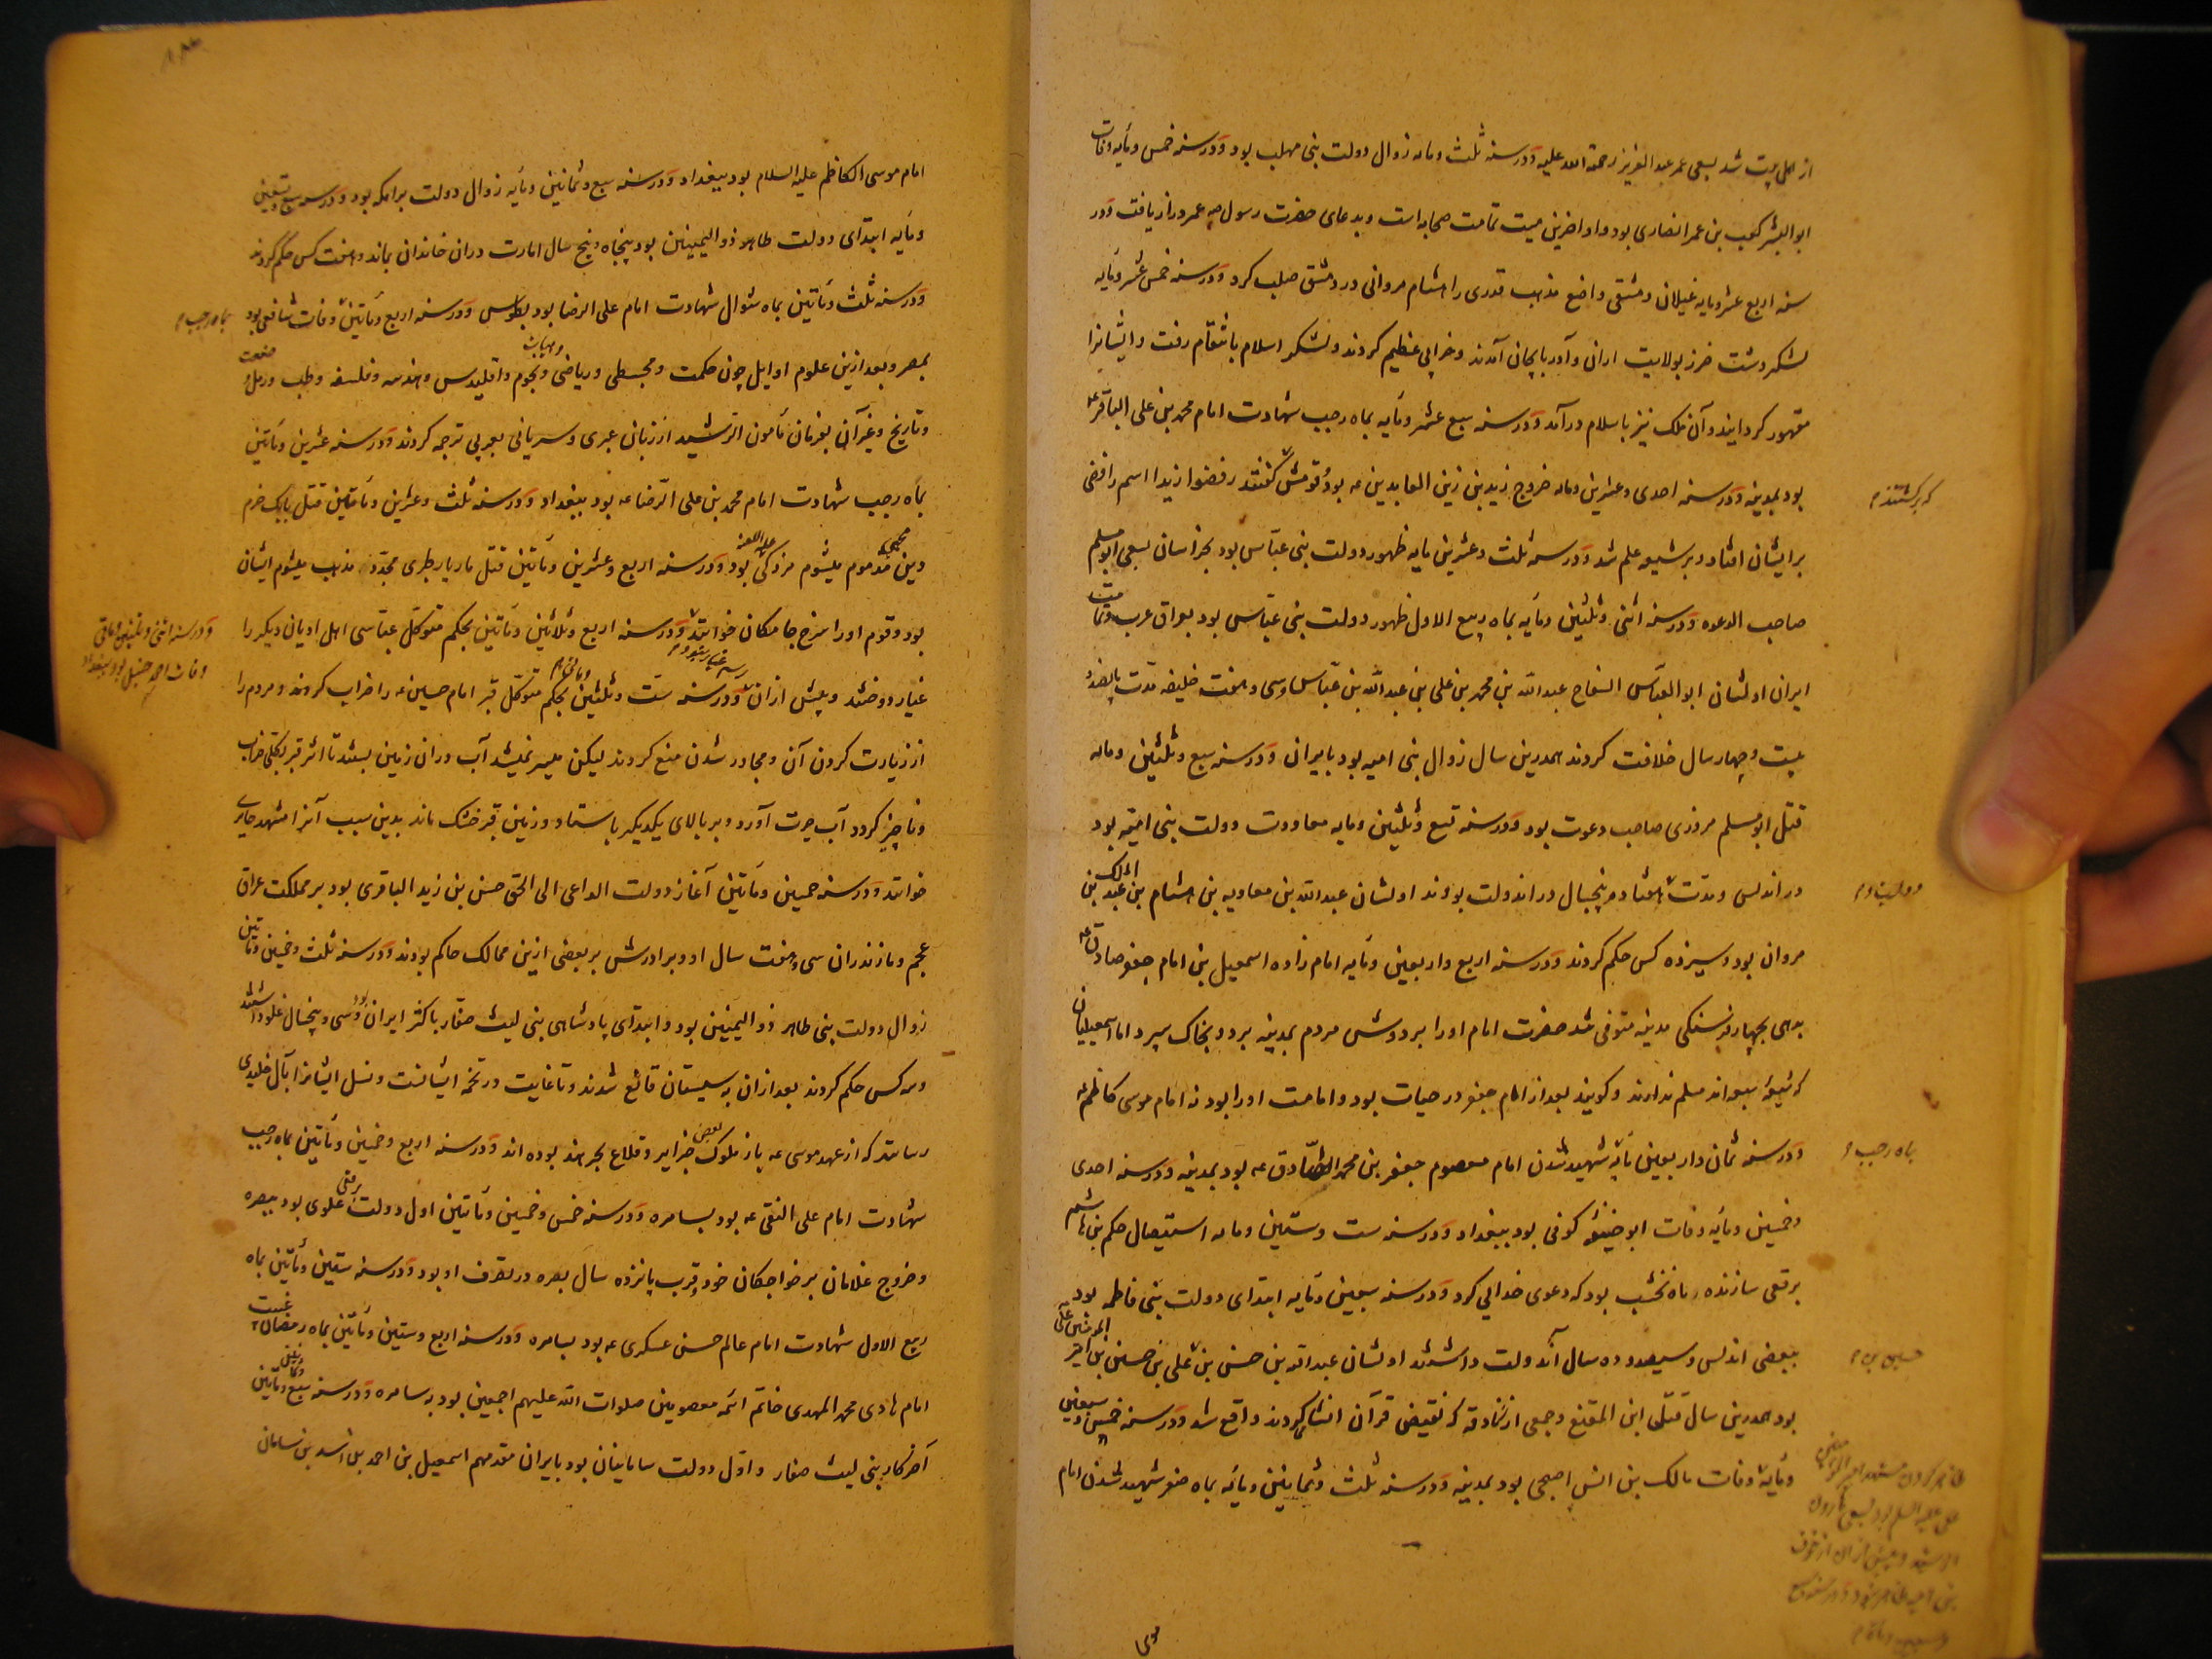 از اهل بیت شد بسعی عمر عبد العزیز رحمة الله علیه و در سنه ثلث و مایه زوال دولت بنی مهلب بود و در سنه خمس و مایه وفات
ابو الیسر کعب بن عمر انصاری بود و او اخرین میت تمامت صحابه است و بدعای حضرت رسول صه عمر دراز یافت و در
سنه اربع عشر و مایه غیلان دمشقی واضع مذهب قدری را هشام مروانی در دمشق صلب کرد و در سنه خمس عشر و مایه
لشکر دشت خزر بولایت اران و آذربایجان آمدند و خرابی عظیم کردند و لشکر اسلام بانتقام رفت و ایشانرا
مقهور کردانیدند و آن ملک نیز باسلام درآمد و در سنه سبع عشر و مایه بماه رجب شهادت امام محمد بن علی الباقر عه
بود بمدینه و در سنه احدی و عشرین و مایه خروج زید بن زین العابدین عه بود و قومش گفتند رفضوا زیدا اسم رافضی
که برکشتند م
بر ایشان افتاد و بر شیعه علم شد و در سنه ثلث و عشرین مایه ظهور دولت بنی عباس بود بخراسان بسعی ابو مسلم
صاحب الدعوه و در سنه اثنی و ثلثین و مایه بماه ربیع الاول ظهور دولت بنی عباس بود بعراق عرب و تمامت
ایران اولشان ابو العباس السفاح عبد الله بن محمد بن علی بن عبد الله بن عباس و سی و هفت خلیفه مدت پانصد و
بیست و چهار سال خلافت کردند همدرین سال زوال بنی امیه بود بایران و در سنه سبع و ثلثین و مایه
قتل ابو مسلم مروزی صاحب دعوت بود و در سنه تسع و ثلثین و مایه معاودت دولت بنی امیه بود
در اندلس و مدت هفتاد و پنجسال در اندولت بودند اولشان عبد الله بن معاویه بن هشام بن عبد الملک بن
مروان بود و سیزده کس حکم کردند و در سنه اربع و اربعین و مایه امام زاده اسمعیل بن امام جعفر صادق عه
بدهی بچهار فرسنکی مدینه متوفی شد حضرت امام او را بر دوش مردم بمدینه برد و بخاک سپرد اما اسمعیلیان
که شیعهٔ سبعه اند مسلم ندارند و کویند بعد از امام جعفر در حیات بود و امامت او را بود نه امام موسی کاظم عه
و در سنه ثمان و اربعین مایه شهید شدن امام معصوم جعفر بن محمد الصادق عه بود بمدینه و در سنه احدی
بماه رجب م
و خمسین و مایه وفات ابو حنیفه کوفی بود ببغداد و در سنه ست و ستین و مایه استیصال حکم بن هاشم
برقعی سازنده ماه نخشب بود که دعوی خدایی کرد و در سنه سبعین و مایه ابتدای دولت بنی فاطمه بود
ببعضی اندلس و سیصد و ده سال آندولت داشتند اولشان عبد الله بن حسن بن علی بن حسین بن امیر المومنین علی
حسین بن م
بود همدرین سال قتل ابن المقنع و جمعی از زنادقه که نقیض قرآن انشا کردند واقع شد و در سنه خمس و سبعین
و مایة وفات مالک بن انس اصبحی بود بمدینه و در سنه ثلث و ثمانین و مایه بماه صفر شهید شدن امام
ظاهر کردن مشهد امیر المومنین
علی علیه السلم بود بسعی هارون
الرشید و پیش ازان از خوف
بنی امیه ظاهر نبود و در سنه تسع
و سبعین و مایه م
موسی
امام موسی الکاظم علیه السلام بود ببغداد و در سنه سبع و ثمانین و مایه زوال دولت برامکه بود و در سنه سبع و تسعین
و مایه ابتدای دولت طاهر ذو الیمینین بود پنجاه و پنج سال امارت دران خاندان بماند و هفت کس حکم کردند
و در سنه ثلث و مأتین بماه شوال شهادت امام علی الرضا بود بطوس و در سنه اربع و مأتین وفات شافعی بود
بماه رجب م
بمصر و بعد ازین علوم اوایل چون حکمت و مجسطی و ریاضی و هیات و نجوم و اقلیدس و هندسه و فلسفه و طب و رمل و
و تاریخ و غیر آن بفرمان مأمون الرشید از زبان عبری و سریانی بعربی ترجمه کردند و در سنه عشرین و مأتین
بماه رجب شهادت امام محمد بن علی الرضا عه بود ببغداد و در سنه ثلث و عشرین و مأتین قتل بابک خرم
دین مذموم میشوم مزدکی علیه اللعنه بود و در سنه اربع و عشرین و مأتین قتل مازیار طبری مجدد مذهب میشوم ایشان
بود و قوم او را سرخ جامکان خوانند و در سنه اربع و ثلاثین و مأتین بحکم متوکل عباسی اهل ادیان دیکر را
و در سنه اثنی و ثلثین و مأتی
وفات احمد حنبل بود ببغداد
غیار دوختند و پیش ازان رسم غیار نبود و در سنه ست و ثلثین و مأتین بحکم متوکل قبر امام حسین عه را خراب کردند و مردم را
از زیارت کردن آن و مجاور شدن منع کردند لیکن میسر نمیشد آب دران زمین بستند تا اثر قبر بکلی خراب
و ناچیز کردد آب حیرت آورد و بر بالای یکدیکر باستاد و زمین قبر خشک ماند بدین سبب آنرا مشهد حایر
خوانند و در سنه خمسین و مأتین آغاز دولت الداعی الی الحق حسن بن زید الباقری بود بر مملکت عراق
عجم و مازندران سی و هفت سال او و برادرش بر بعضی ازین ممالک حاکم بودند و در سنه ثلث و خمسین و مأتین
زوال دولت بنی طاهر ذو الیمینین بود و ابتدای پادشاهی بنی لیث صفار باکثر ایران بود و سی و پنجسال غلو داشتند
و سه کس حکم کردند بعد ازان به سیستان قانع شدند و تا غایت در تخمه ایشانست و نسل ایشانرا بآل خلیدی
رسانند که از عهد موسی عه باز ملوک بعضی جزایر و قلاع بحر هند بوده اند و در سنه اربع و خمسین و مأتین بماه رجب
شهادت امام علی النقی عه بود بسامره و در سنه خمس و خمسین و مأتین اول دولت برقعی علوی بود ببصره
و خروج غلامان بر خواجکان خود و قرب پانزده سال بصره در تصرف او بود و در سنه ستین و مأتین بماه
ربیع الاول شهادت امام عالم حسن عسکری عه بود بسامره و در سنه اربع و ستین و مأتین بماه رمضان غیبت
امام هادی محمد المهدی خاتم ائمه معصومین صلوات الله علیهم اجمعین بود به سامره و در سنه سبع و ثمانین و مأتین
آخر کار بنی لیث صفار و اول دولت سامانیان بود بایران مقدمهم اسمعیل بن احمد بن اسد بن سامان